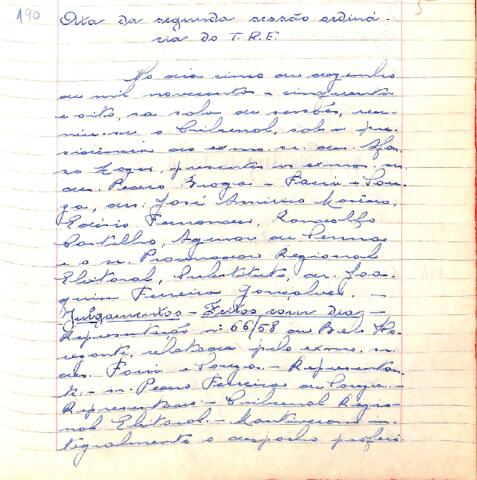 190
Ata da segunda sessão ordiná-
ria do T.R.E.
No dia cinco de dezembro
de mil novecentos e cinquenta
e oito, na sala de sessões, reu-
niu-se o Tribunal, sob a pre-
sidência do exmo. sr. des. Afon-
so Lages, presentes os exmos. srs.
des. Pedro Braga e Faria e Sou-
za, drs. José Américo Macedo,
Edésio Fernandes,
Castilho, Agenor de Senna
e o sr. Procurador Regional
Eleitoral, Substituto, dr. Joa-
quim Ferreira Gonçalves. -
Julgamentos - Feitos com Dia -
Representação nº 66/58 de Belo Ho-
rizonte, relatada pelo exmo. sr.
des. Faria e Souza. - Representan-
te - sr. Pedro Ferreira de Souza. -
Representado - Tribunal Regio-
nal Eleitoral. - Mantiveram in-
tegralmente o despacho proferi-